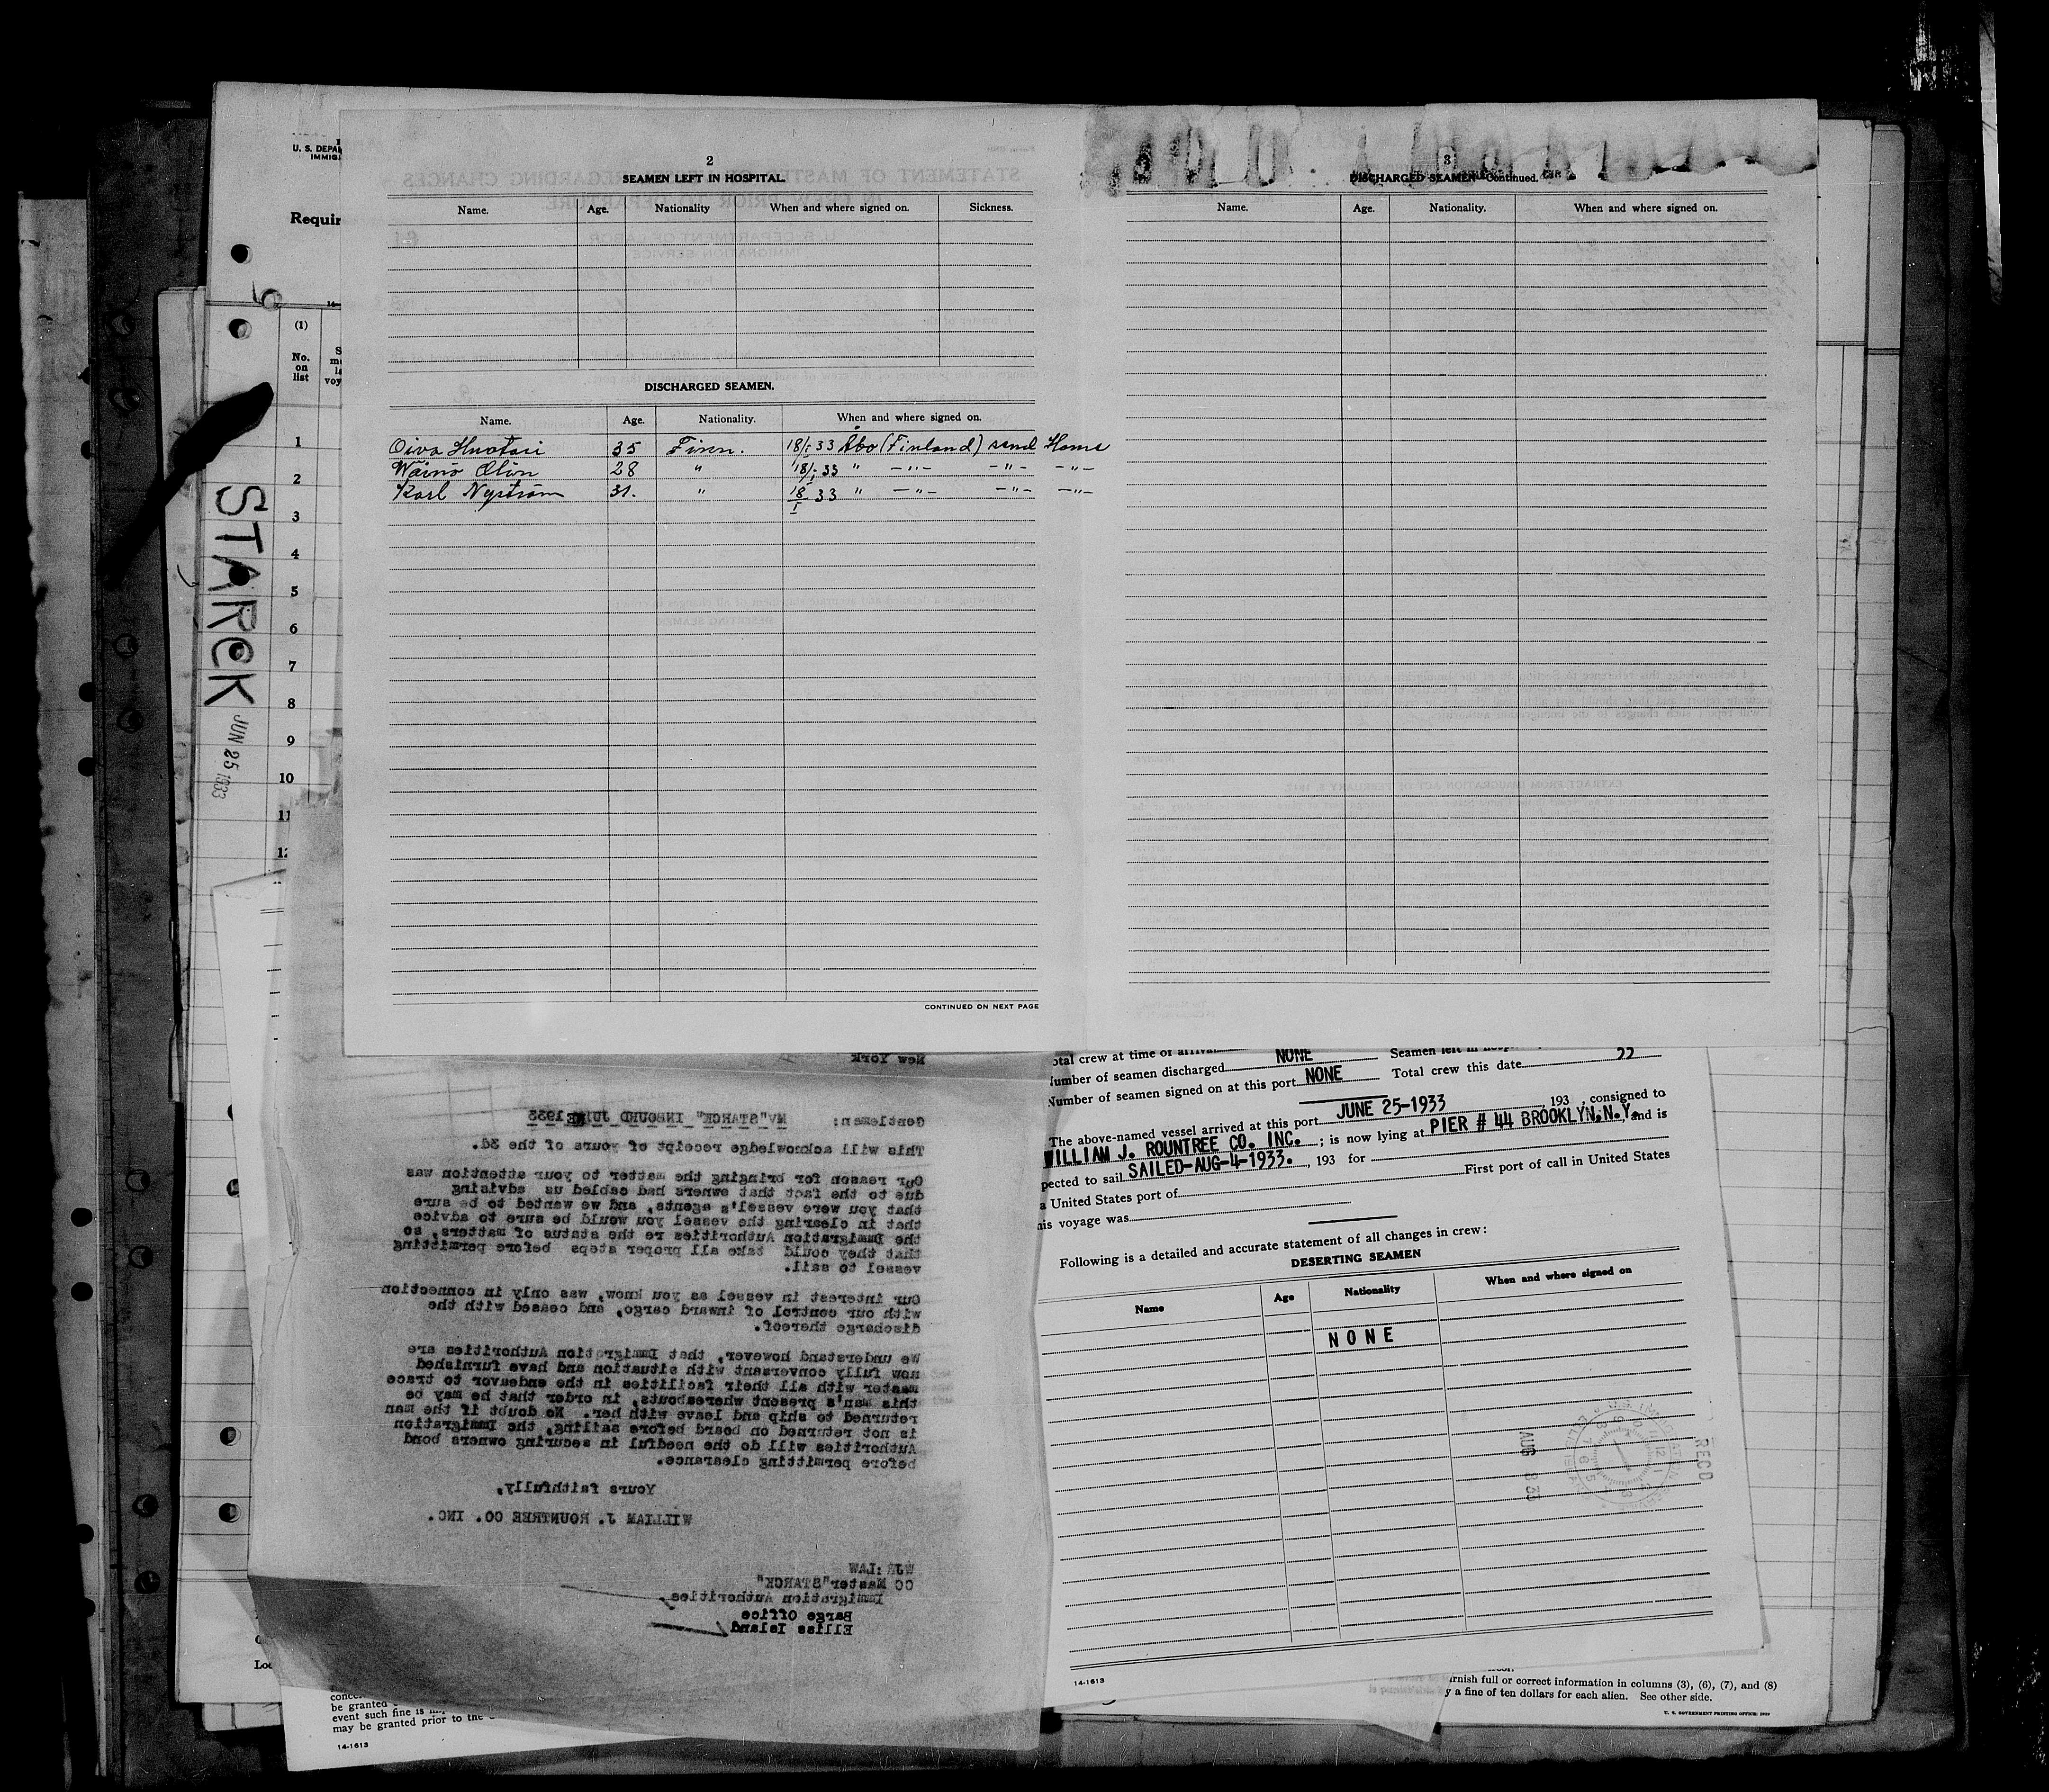 U. S. DEPA
IMMIG
Requir
(1)
No.
on
list
1
2
3
4
5
6
7
8
9
10
11
12
STARCK
JUN 25 1933
2
SEAMEN LEFT IN HOSPITAL.
Name. Age. Nationality When and where signed on. Sickness.
DISCHARGED SEAMEN.
Name. Age. Nationality. When and where signed on.
Oiva Huotari 35 Finn. 18/I 33 Åbo (Finland) send Home
Wäinö Olin 28 " 18/I 33 " -"- -"- -"-
Karl Nyström 31. " 18/I 33 " -"- -"- -"-
CONTINUED ON NEXT PAGE
3
DISCHARGED SEAMEN—Continued.
Name. Age. Nationality. When and where signed on.
New York
Gentlemen: MV"STARCK" INBOUND JUNE 1933
This will acknowledge receipt of yours of the 3d.
Our reason for bringing the matter to your attention was
due to the fact that owners had cabled us advising
that you were vessel's agents, and we wanted to be sure
that in clearing the vessel you would be sure to advice
the Immigration Authorities re the status of matters, so
that they could take all proper steps before permitting
vessel to sail.
Our interest in vessel as you know, was only in connection
with our control of inward cargo, and ceased with the
discharge thereof.
We understand however, that Immigration Authorities are
now fully conversant with situation and have furnished
master with all their facilities in the endeavor to trace
this man's present whereabouts, in order that he may be
returned to ship and leave with her. No doubt if the man
is not returned on board before sailing, the Immigration
Authorities will do the needful in securing owners bond
before permitting clearance.
Yours faithfully,
WILLIAM J. ROUNTREE CO. INC.
WJR:LAW
CC Master "STARCK"
Immigration Authorities
Barge Office
Ellis Island
otal crew at time of arrival NONE Seamen left in
Number of seamen discharged NONE Total crew this date 22
Number of seamen signed on at this port NONE
The above-named vessel arrived at this port JUNE 25-1933, 193 , consigned to
WILLIAM J. ROUNTREE CO. INC. ; is now lying at PIER # 44 BROOKLYN,N.Y. and is
pected to sail SAILED-AUG-4-1933. , 193 for
a United States port of First port of call in United States
his voyage was
Following is a detailed and accurate statement of all changes in crew:
DESERTING SEAMEN
Name Age Nationality When and where signed on
NONE
RECD
AUG 8 33
14-1613
rnish full or correct information in columns (3), (6), (7), and (8)
y a fine of ten dollars for each alien. See other side.
U. S. GOVERNMENT PRINTING OFFICE:
be granted
event such fine is
may be granted prior to the
14-1613